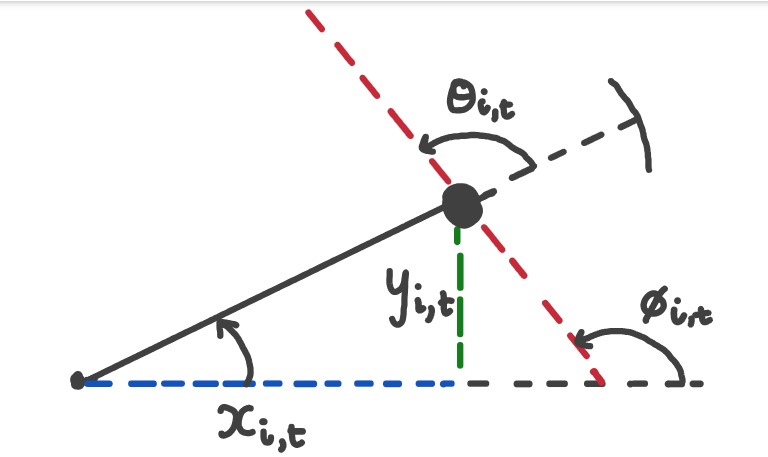 θi,t
yi,t
ϕi,t
xi,t